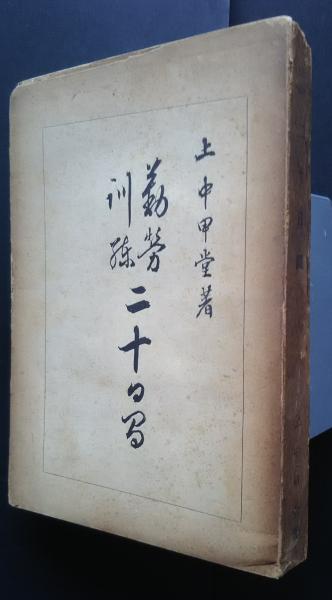 上中甲堂著
勤勞
訓練
二十日間